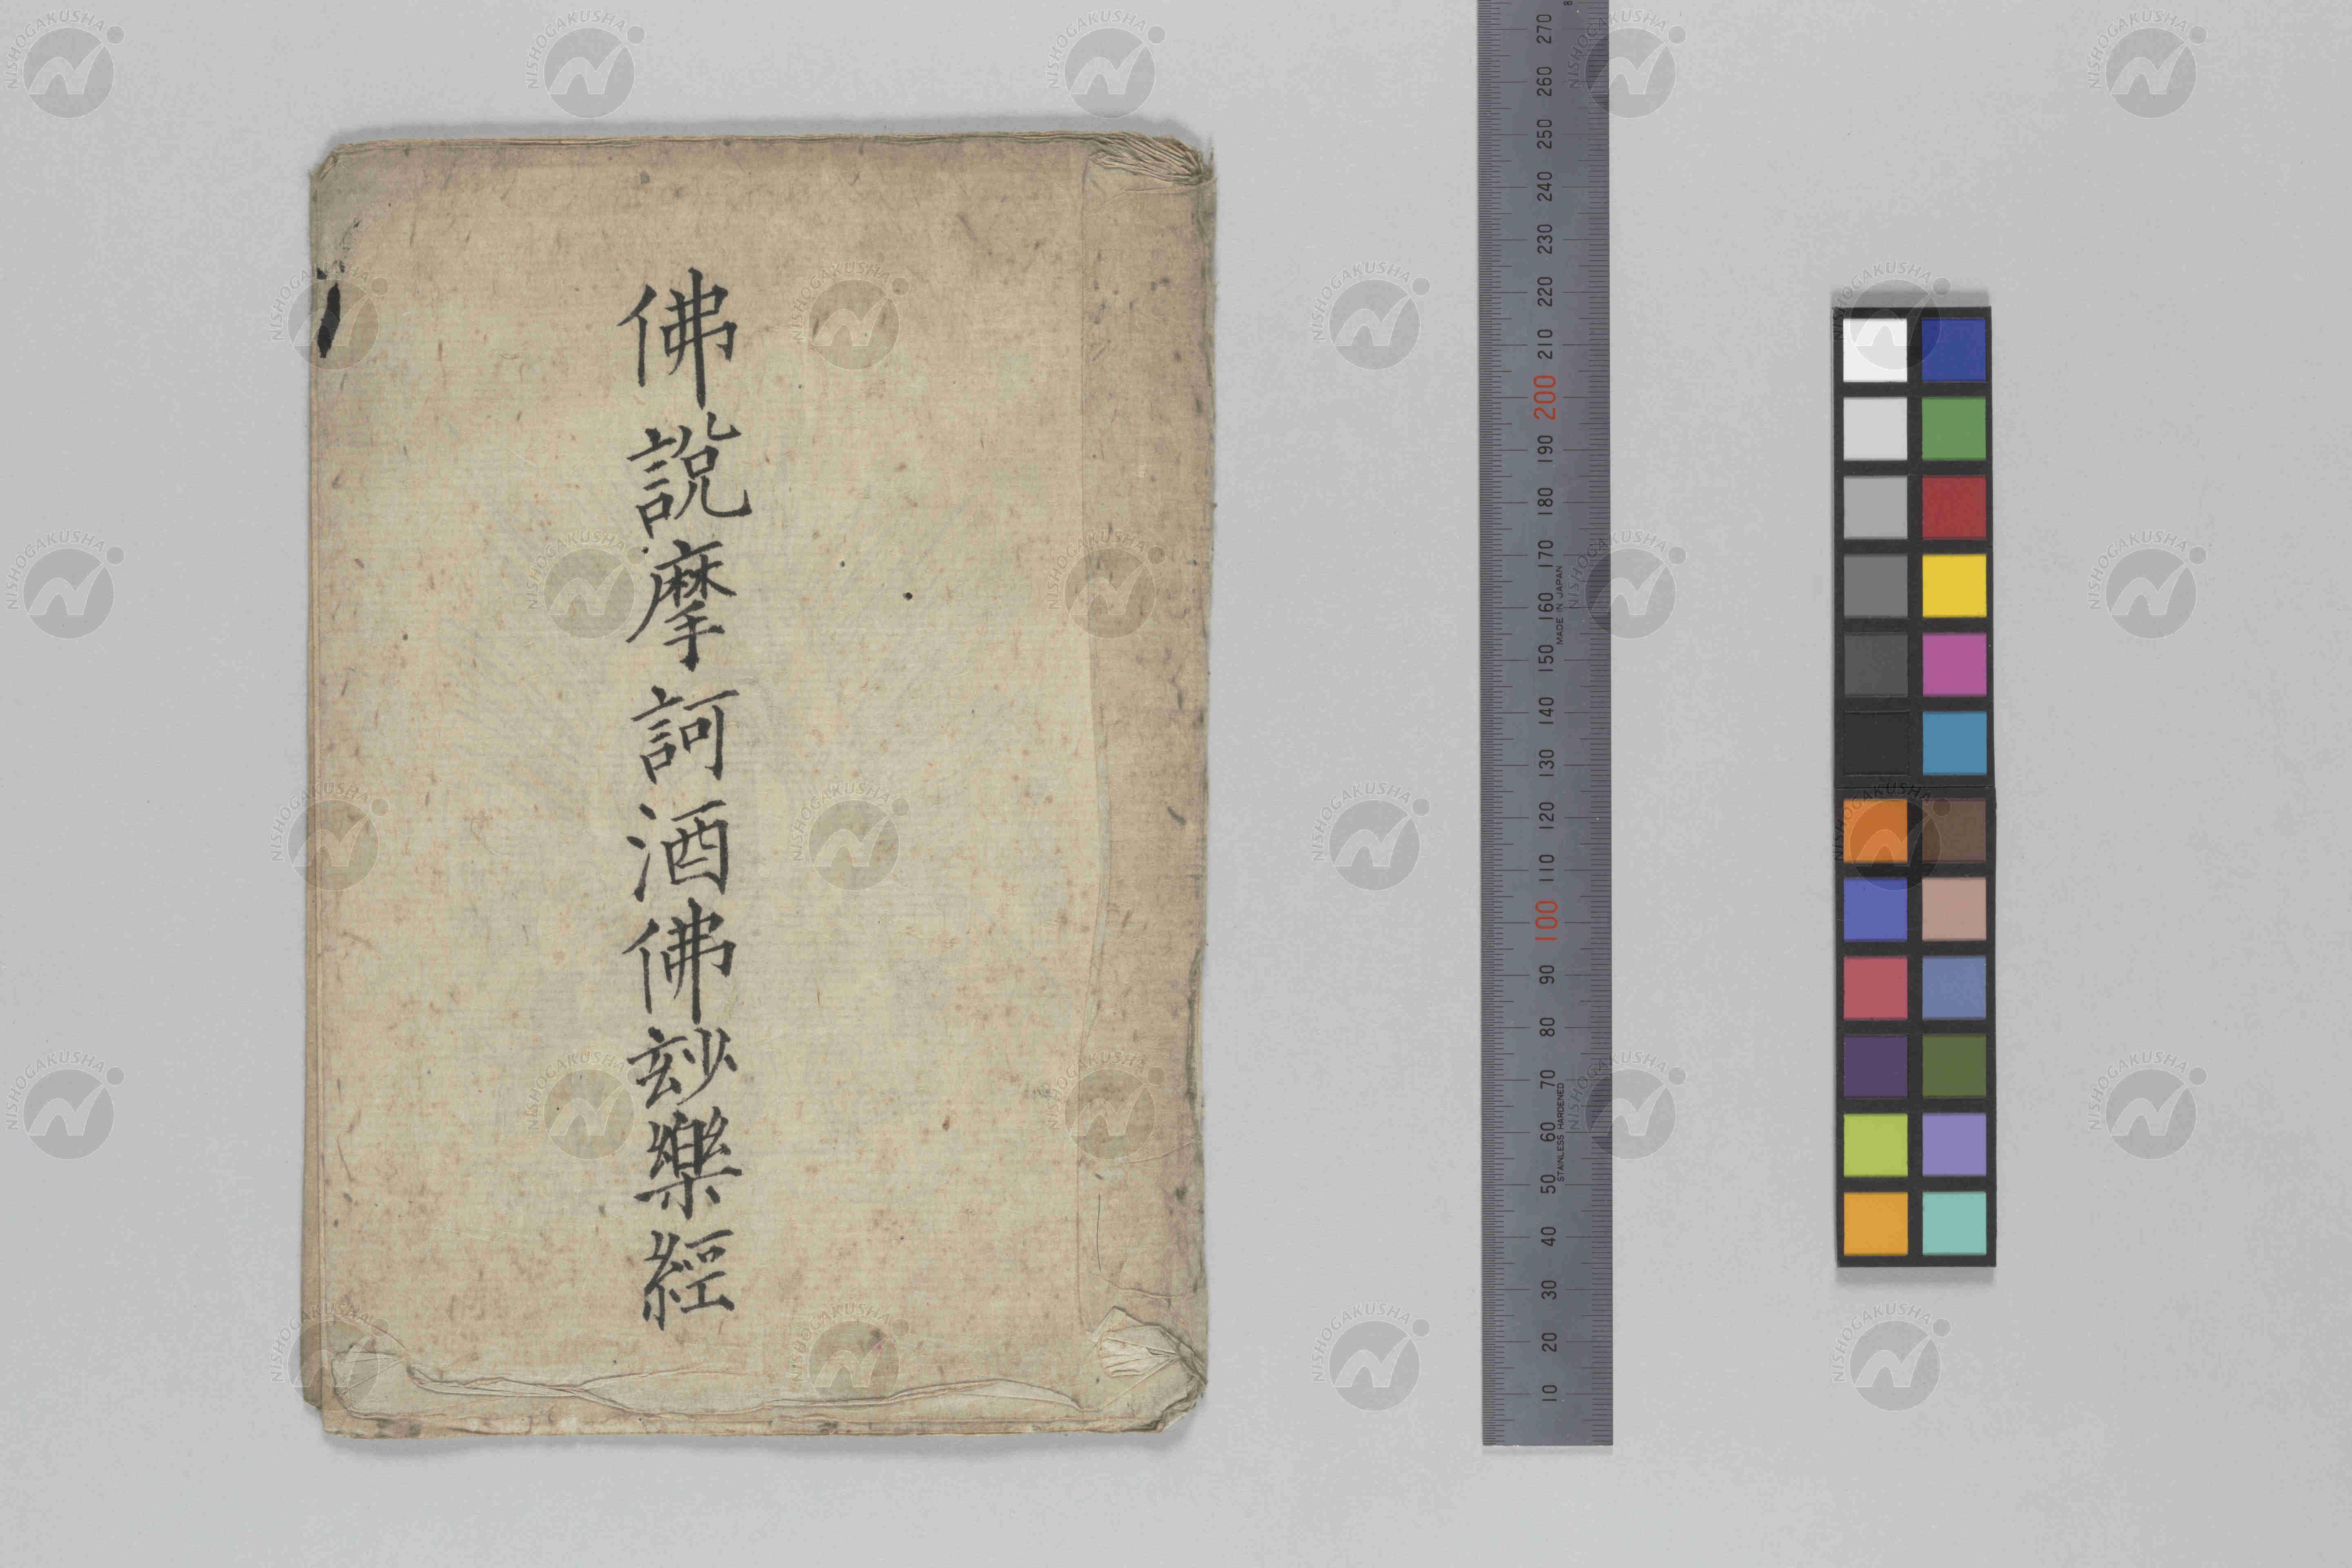 佛說摩訶酒佛玅樂經
270
260
250
240
230
220
210
200
190
180
170
160
150
140
130
120
110
100
90
80
70
60
50
40
30
20
10
MADE IN JAPAN
STAINLESS HARDENED
NISHOGAKUSHA